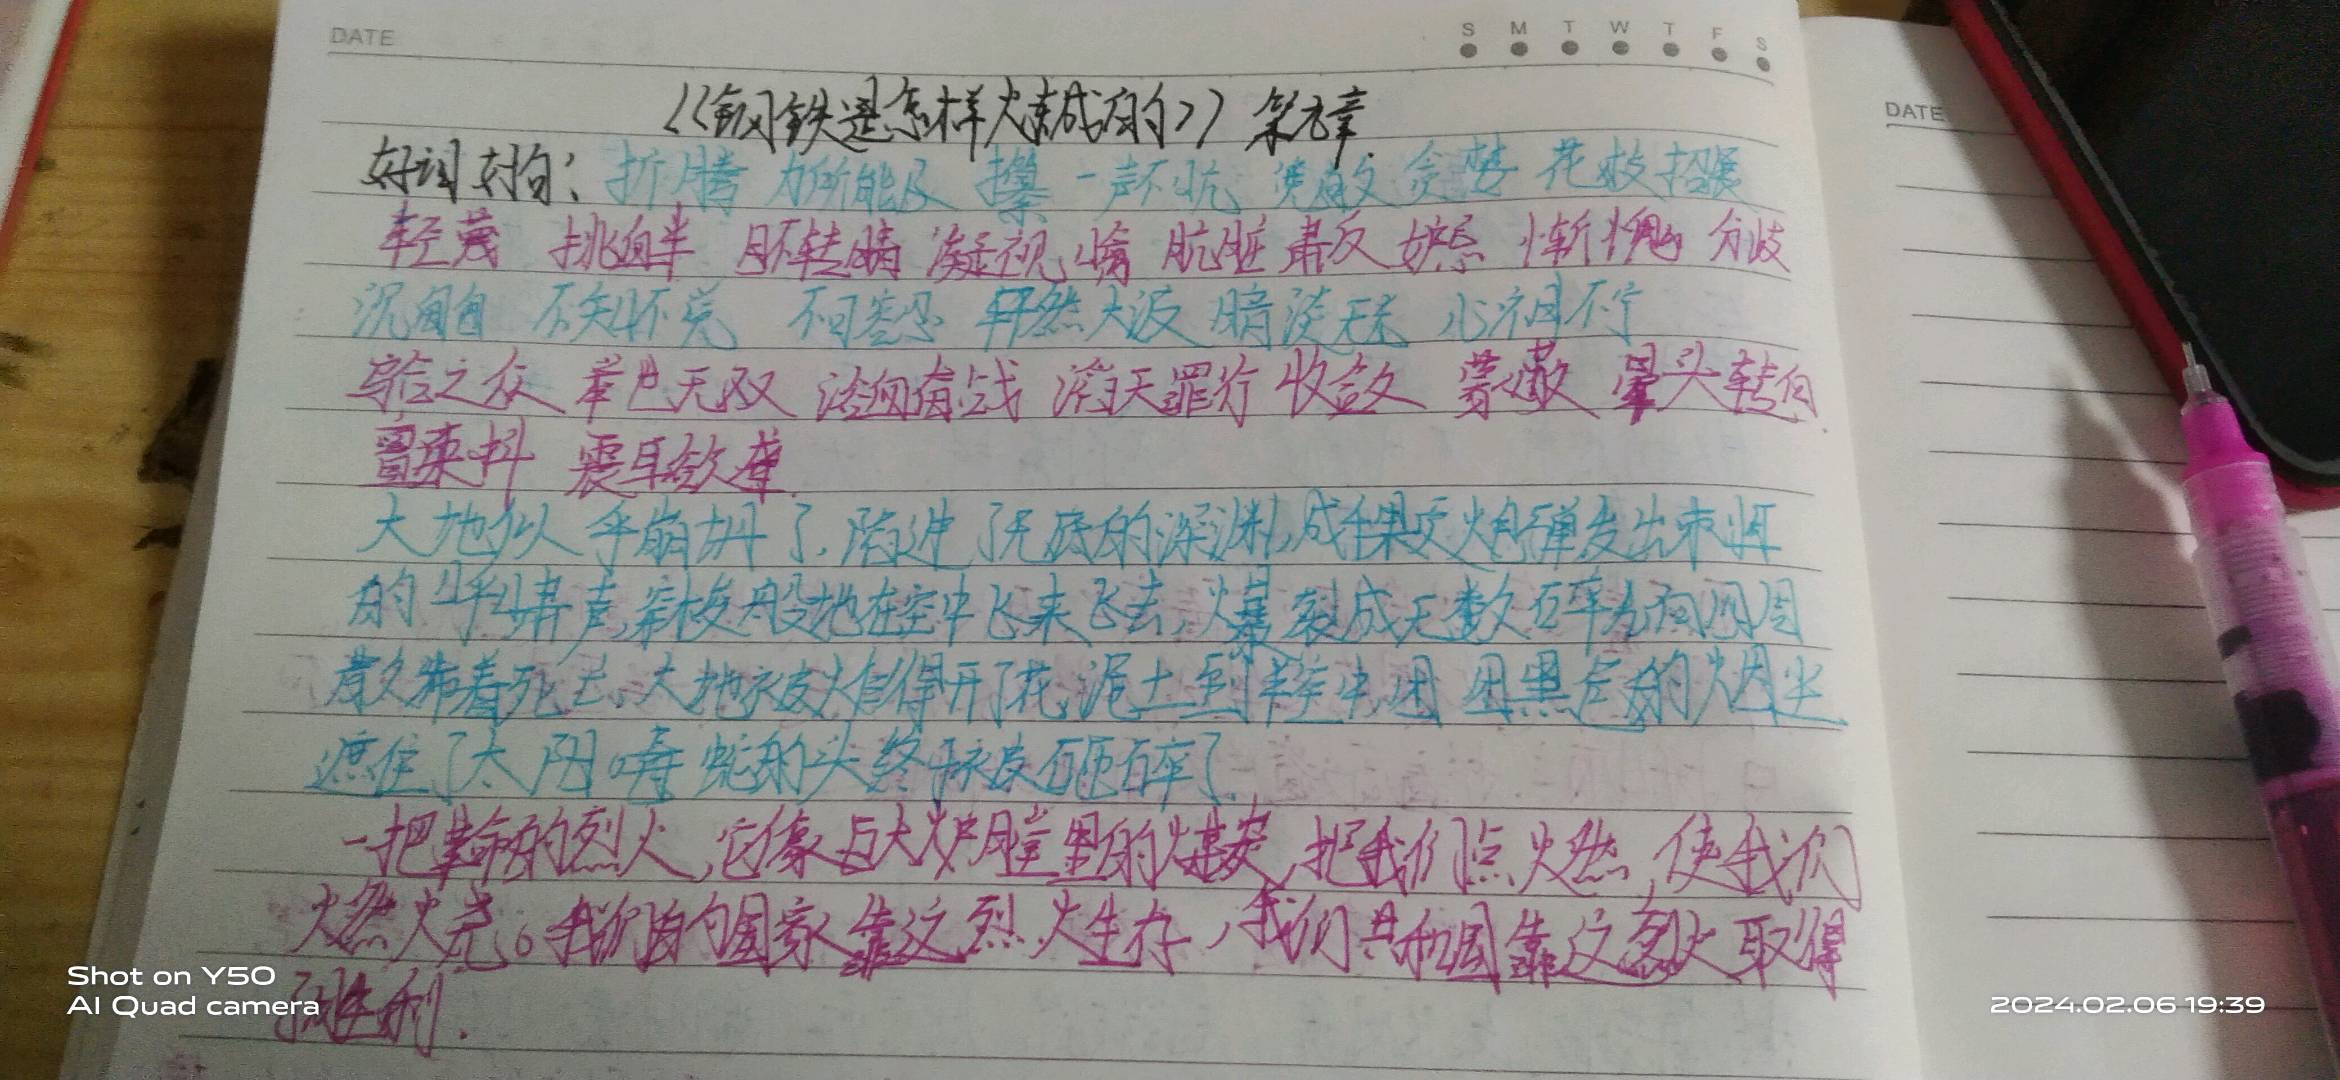 DATE
S M T W T F S
《钢铁是怎样炼成的》第九章
DATE
好词好句: 折腾 力所能及 摸 一声不吭 宽敞 贪婪 花枝招展
轻蔑 挑衅 目不转睛 凝视 肮脏 肃反 妒忌 惭愧 分歧
沉甸甸 不知不觉 不可思议 轩然大波 暗淡无光 心神不宁
乌合之众 举世无双 浴血奋战 滔天罪行 收敛 晕头转向
冒 抖 震耳欲聋
大地似乎崩坍了,陷进了无底的深渊,成千颗炮弹发出束
的呼啸声,穿梭般地在空中飞来飞去,爆裂成无数碎片向四周
散带着死亡,大地被炸得开了花,泥土到半空中,团团黑色的烟尘
遮住了太阳 毒蛇的头终于被砸碎了.
一把革命的烈火,它像大炉膛里的煤炭,把我们点燃,使我们
燃烧。我们的国家靠这烈火生存,我们共和国靠这烈火取得
了胜利.
Shot on Y50
AI Quad camera
2024.02.06 19:39